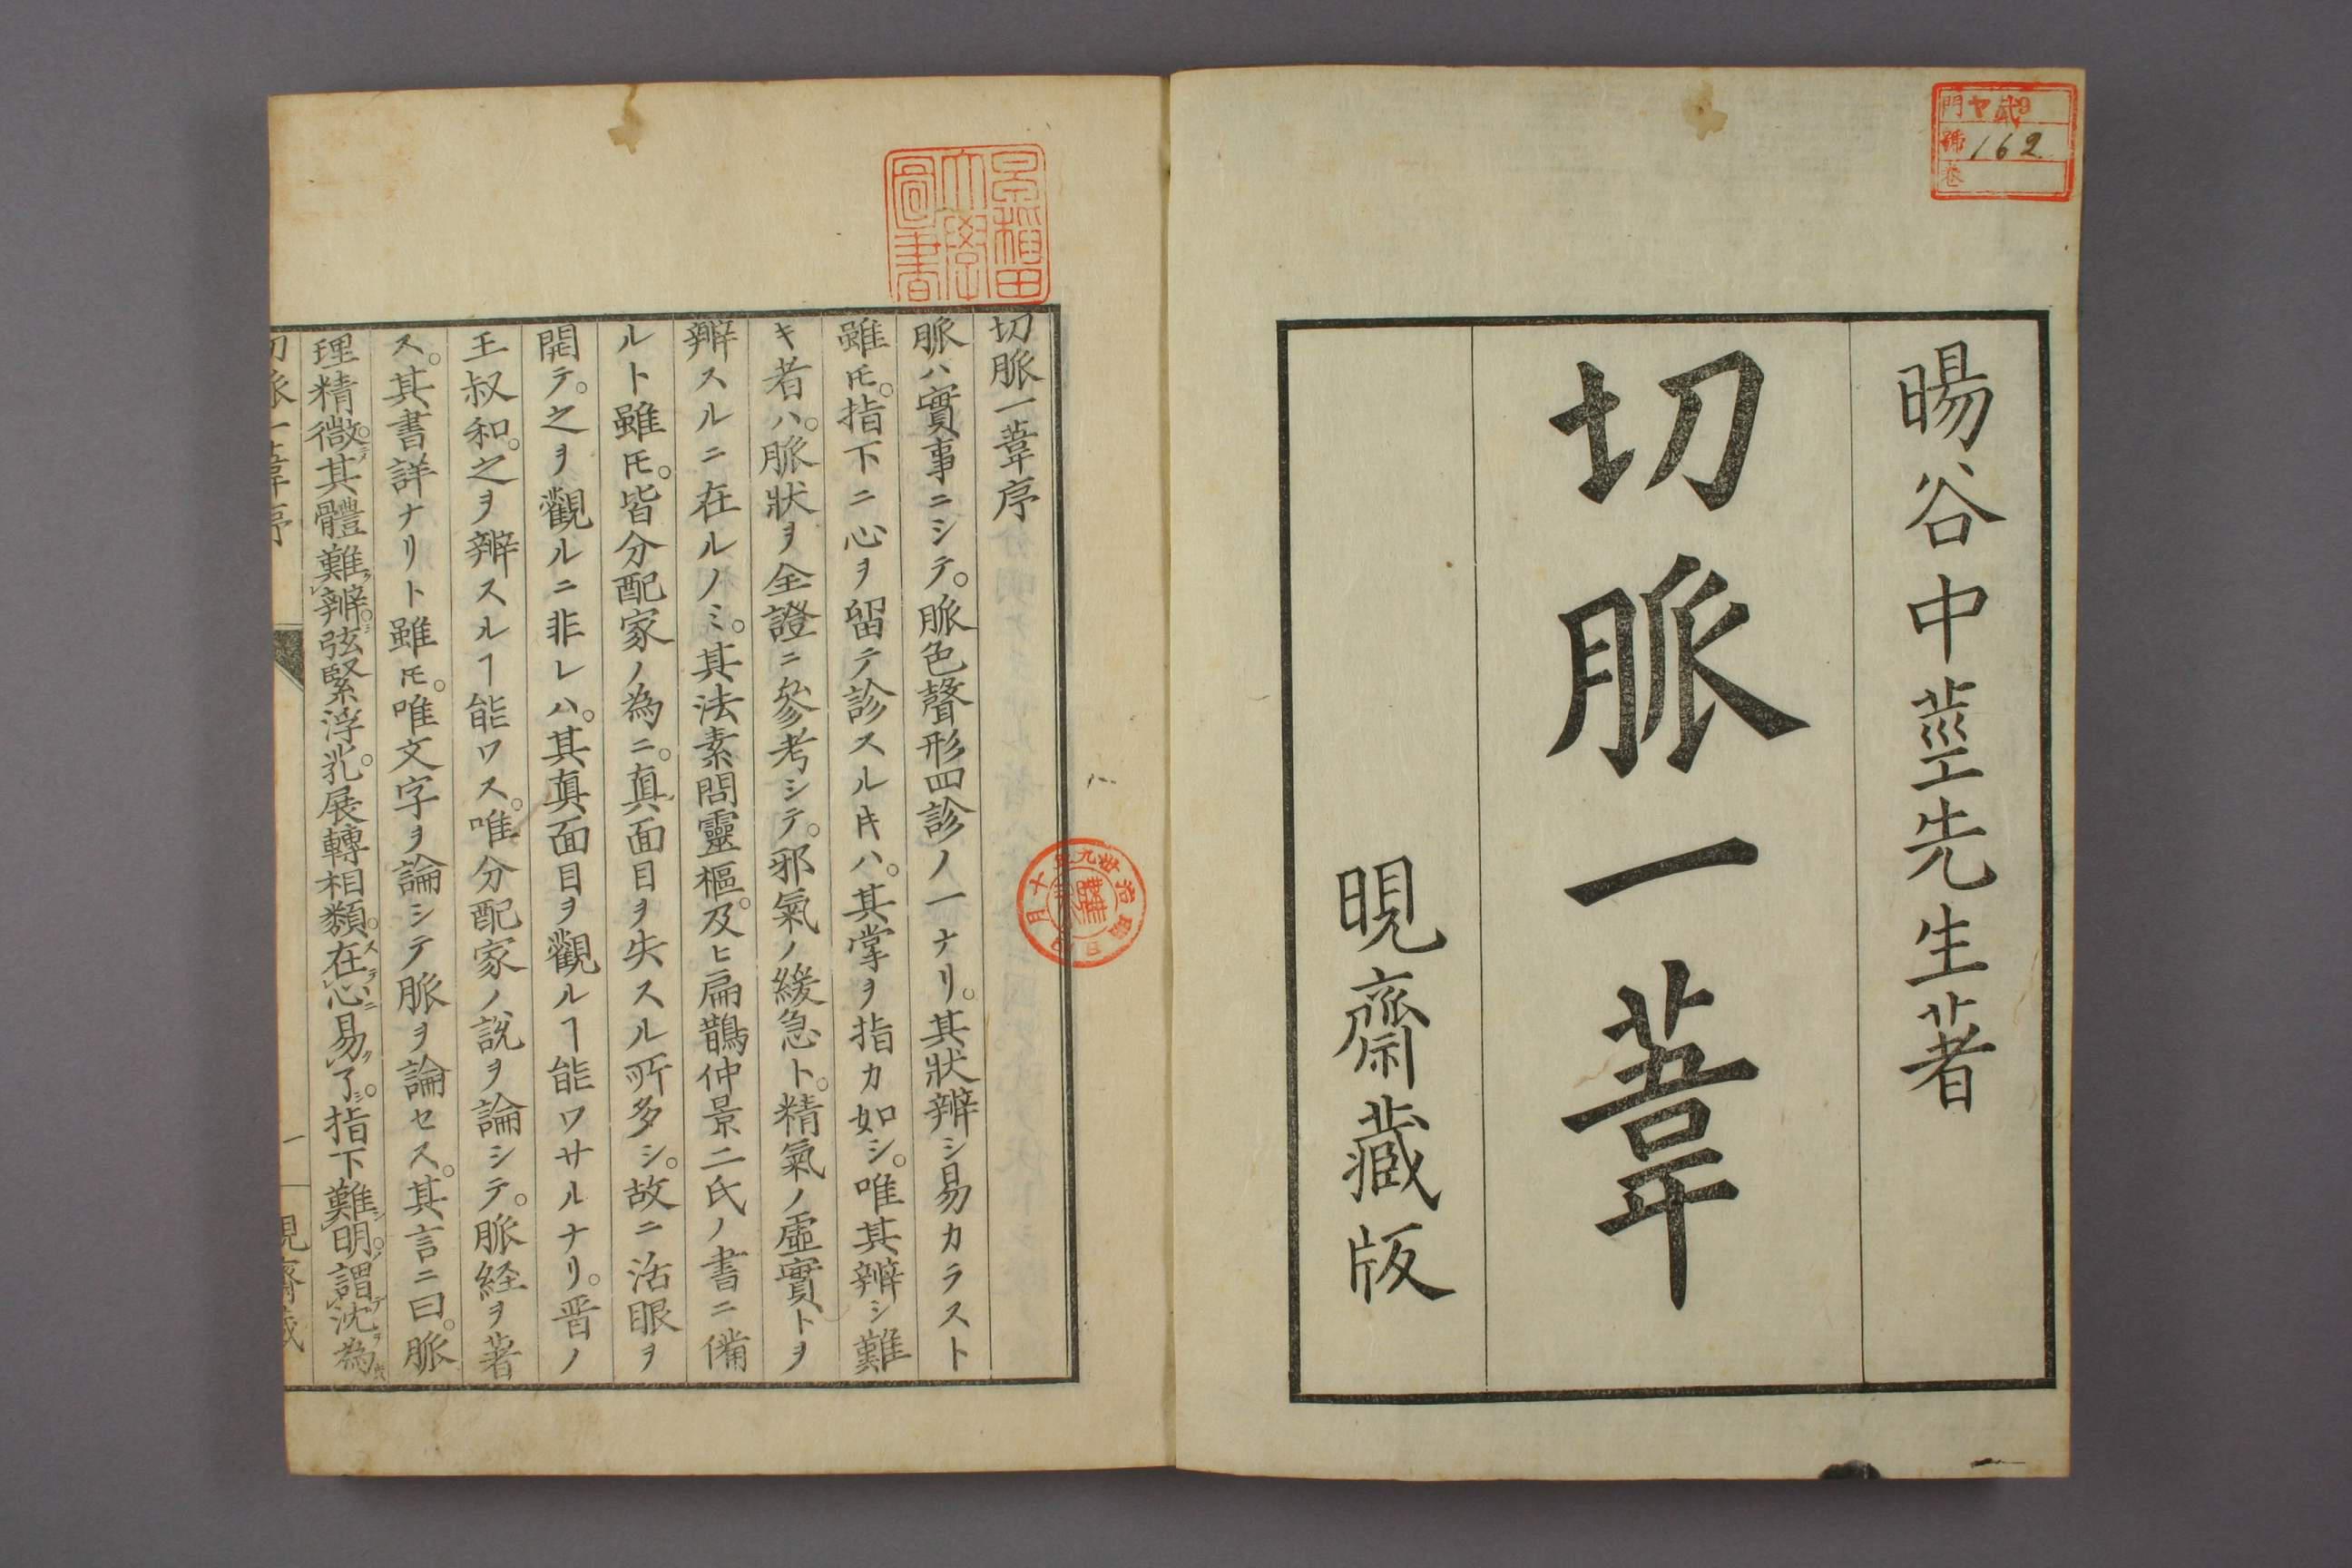 門ヤ貳9
號162
巻
暘谷中莖先生著
切脈一葦
晛齋藏版
早稲田大學圖書
切脈一葦序
脈ハ實事ニシテ。脈色聲形四診ノ一ナリ。其狀辨シ易カラスト
雖𪜈。指下ニ心ヲ留テ診スルㇳキハ。其掌ヲ指カ如シ。唯其辨シ難
キ者ハ。脈狀ヲ全證ニ參考シテ。邪氣ノ緩急ト。精氣ノ虛實トヲ
辨スルニ在ルノミ。其法素問靈樞。及ヒ扁鵲仲景二氏ノ書ニ備
ルト雖𪜈。皆分配家ノ為ニ。真面目ヲ失スル所多シ。故ニ活眼ヲ
開テ。之ヲ觀ルニ非レハ。其真面目ヲ觀ルヿ能ワサルナリ。晋ノ
王叔和。之ヲ辨スルヿ能ワス。唯分配家ノ說ヲ論シテ。脈経ヲ著
ス。其書詳ナリト雖𪜈。唯文字ヲ論シテ脈ヲ論セス。其言ニ曰。脈
理精微。其體難辨。弦緊浮芤。展轉相類。在心易了。指下難明。謂沈為
切脈一葦序
一
晛齋藏